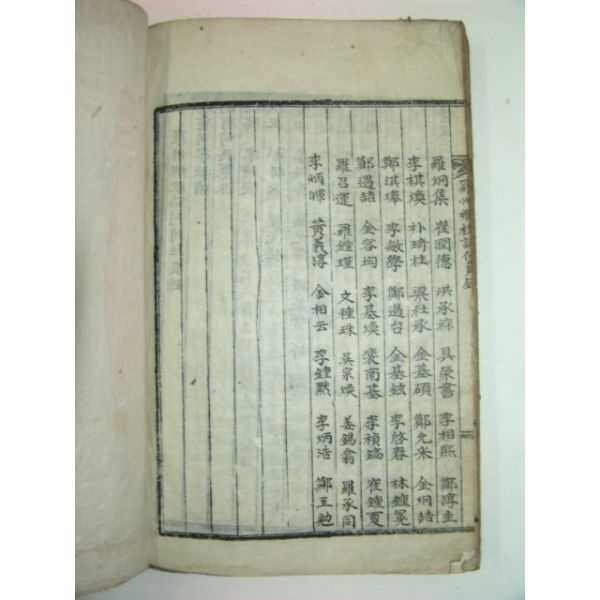 羅炯集 崔潤德 洪承 具榮書 李相熙 鄭淳圭
李棋煥 朴琦柱 梁社承 金基碩 鄭允采 金炯喆
鄭淇瑧 李敏學 鄭遇台 金基鉉 李啓春 林鍾冕
鄭遇喆 金容珣 李基煥 裴南基 李禎鎬 崔鍾夏
羅召運 羅鍾瑾 文種珠 吳宗煥 姜錫翁 羅承同
李炳暉 黃義淳 金相云 李鍾默 李炳浩 鄭王勉